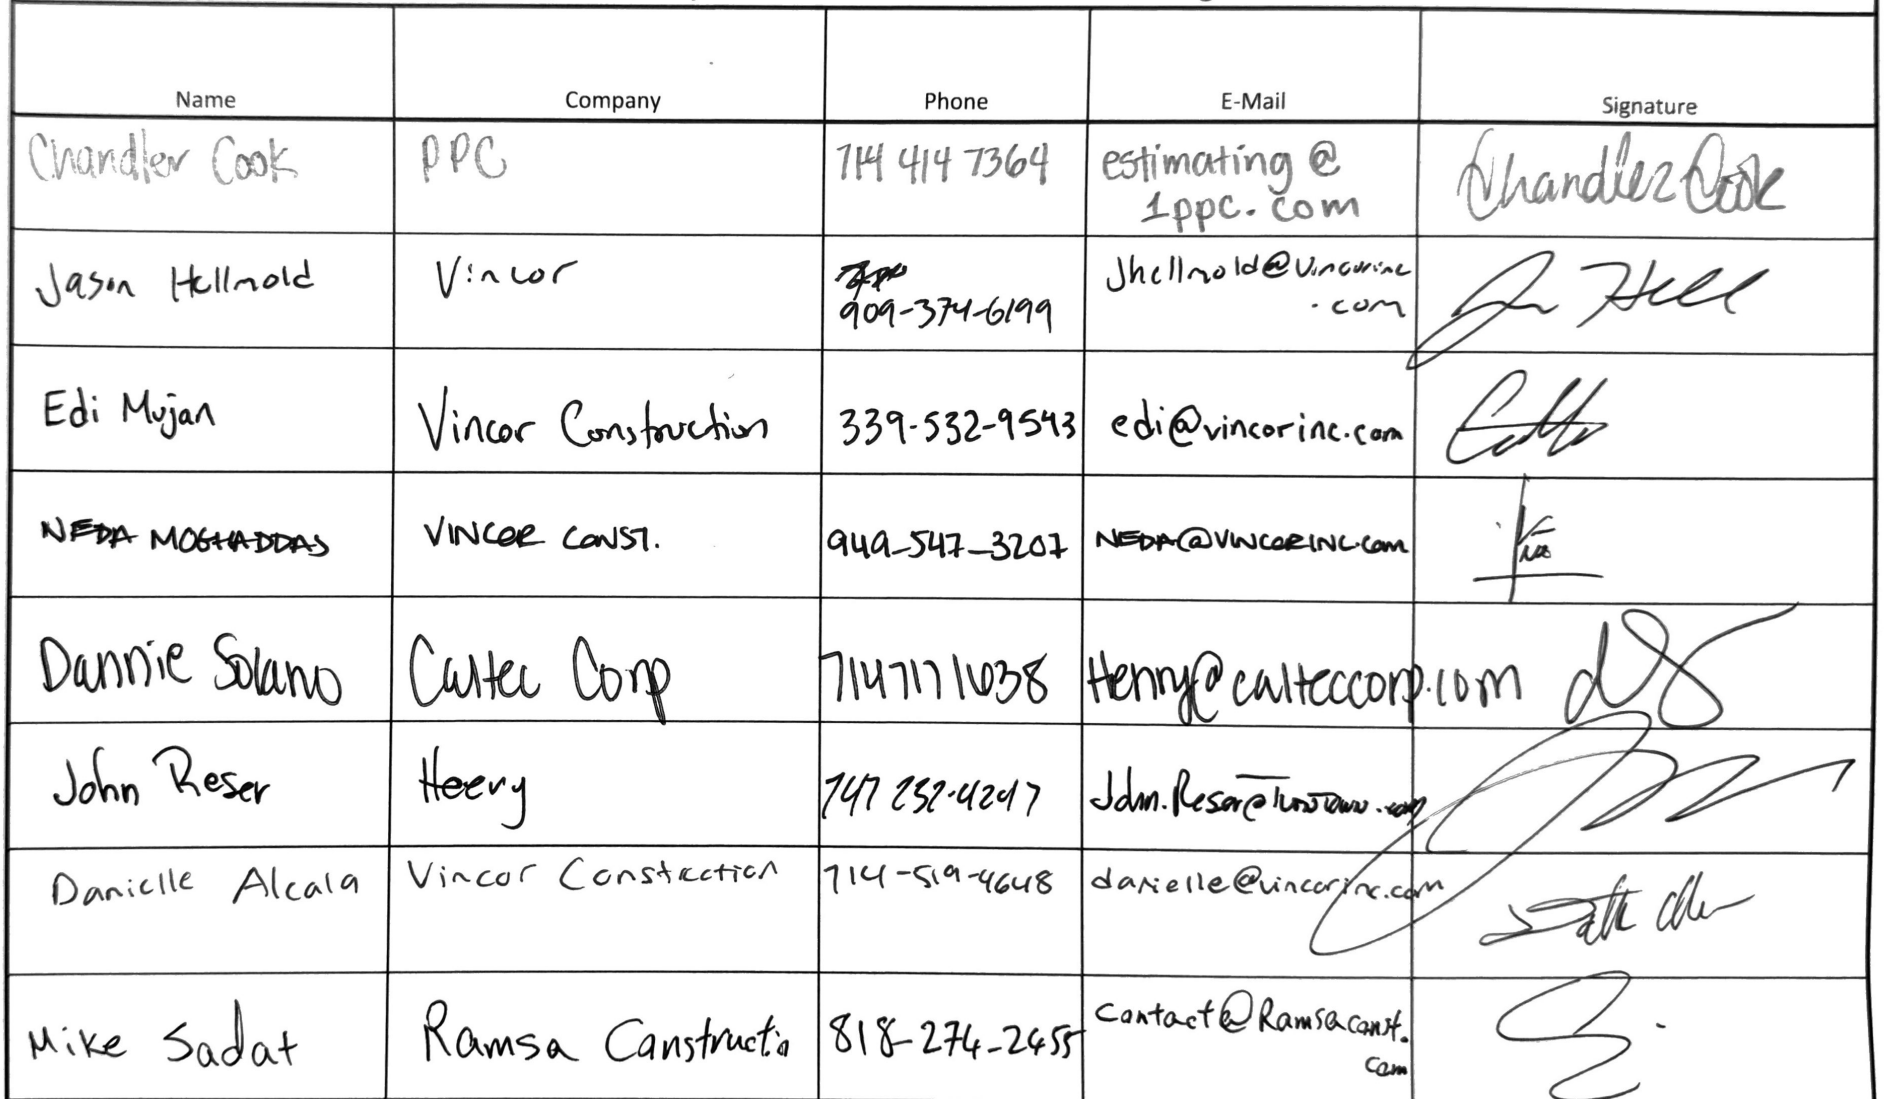 Name Company Phone E-Mail Signature
Chandler Cook PPC 714 414 7364 estimating@ Chandler Cook
1ppc.com
Jason Hellmold Vincor Jhellmold@vincorinc
909-374-6199 .com
Edi Mujan Vincor Construction 339-532-9543 edi@vincorinc.com
NEDA MOGHADDAS VINCOR CONST. 949-547-3207 NEDA@VINCORINC.com
Dannie Solano Caltec Corp 7147171638 Henry@calteccorp.com
John Reser Heery 747 232-4247
Danielle Alcala Vincor Constrction 714-519-4648 danielle@vincorinc.com
Mike Sadat Ramsa Constructio 818-274-2455 Contact@Ramsaconst.
com